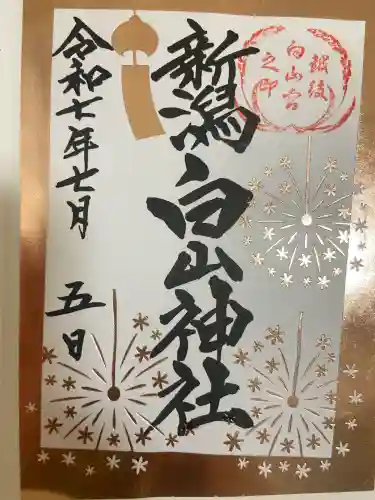 越後
白山宮
之印
新潟白山神社
令和七年七月 五日